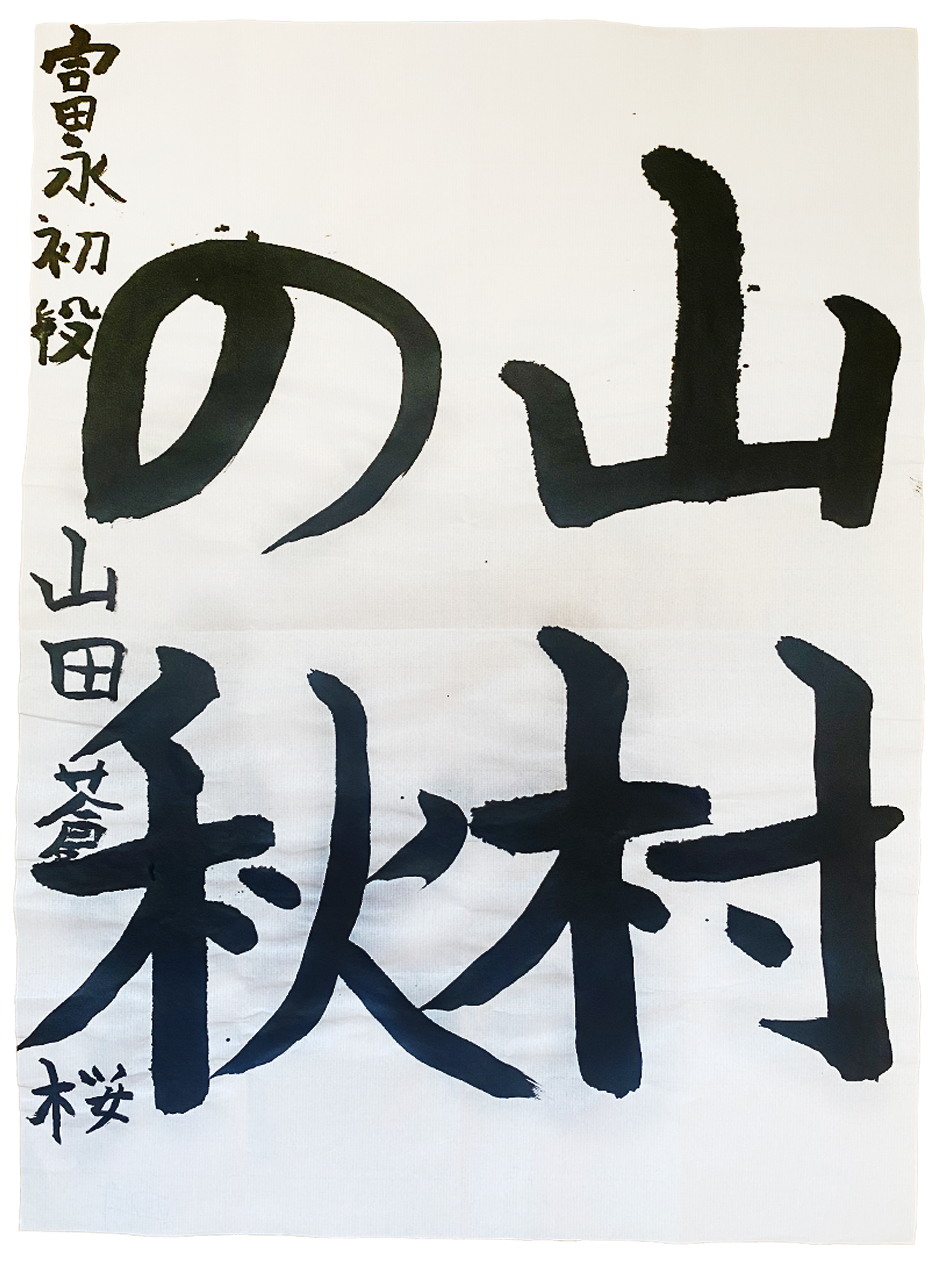 山村
の秋
富永初段山田蒼桜